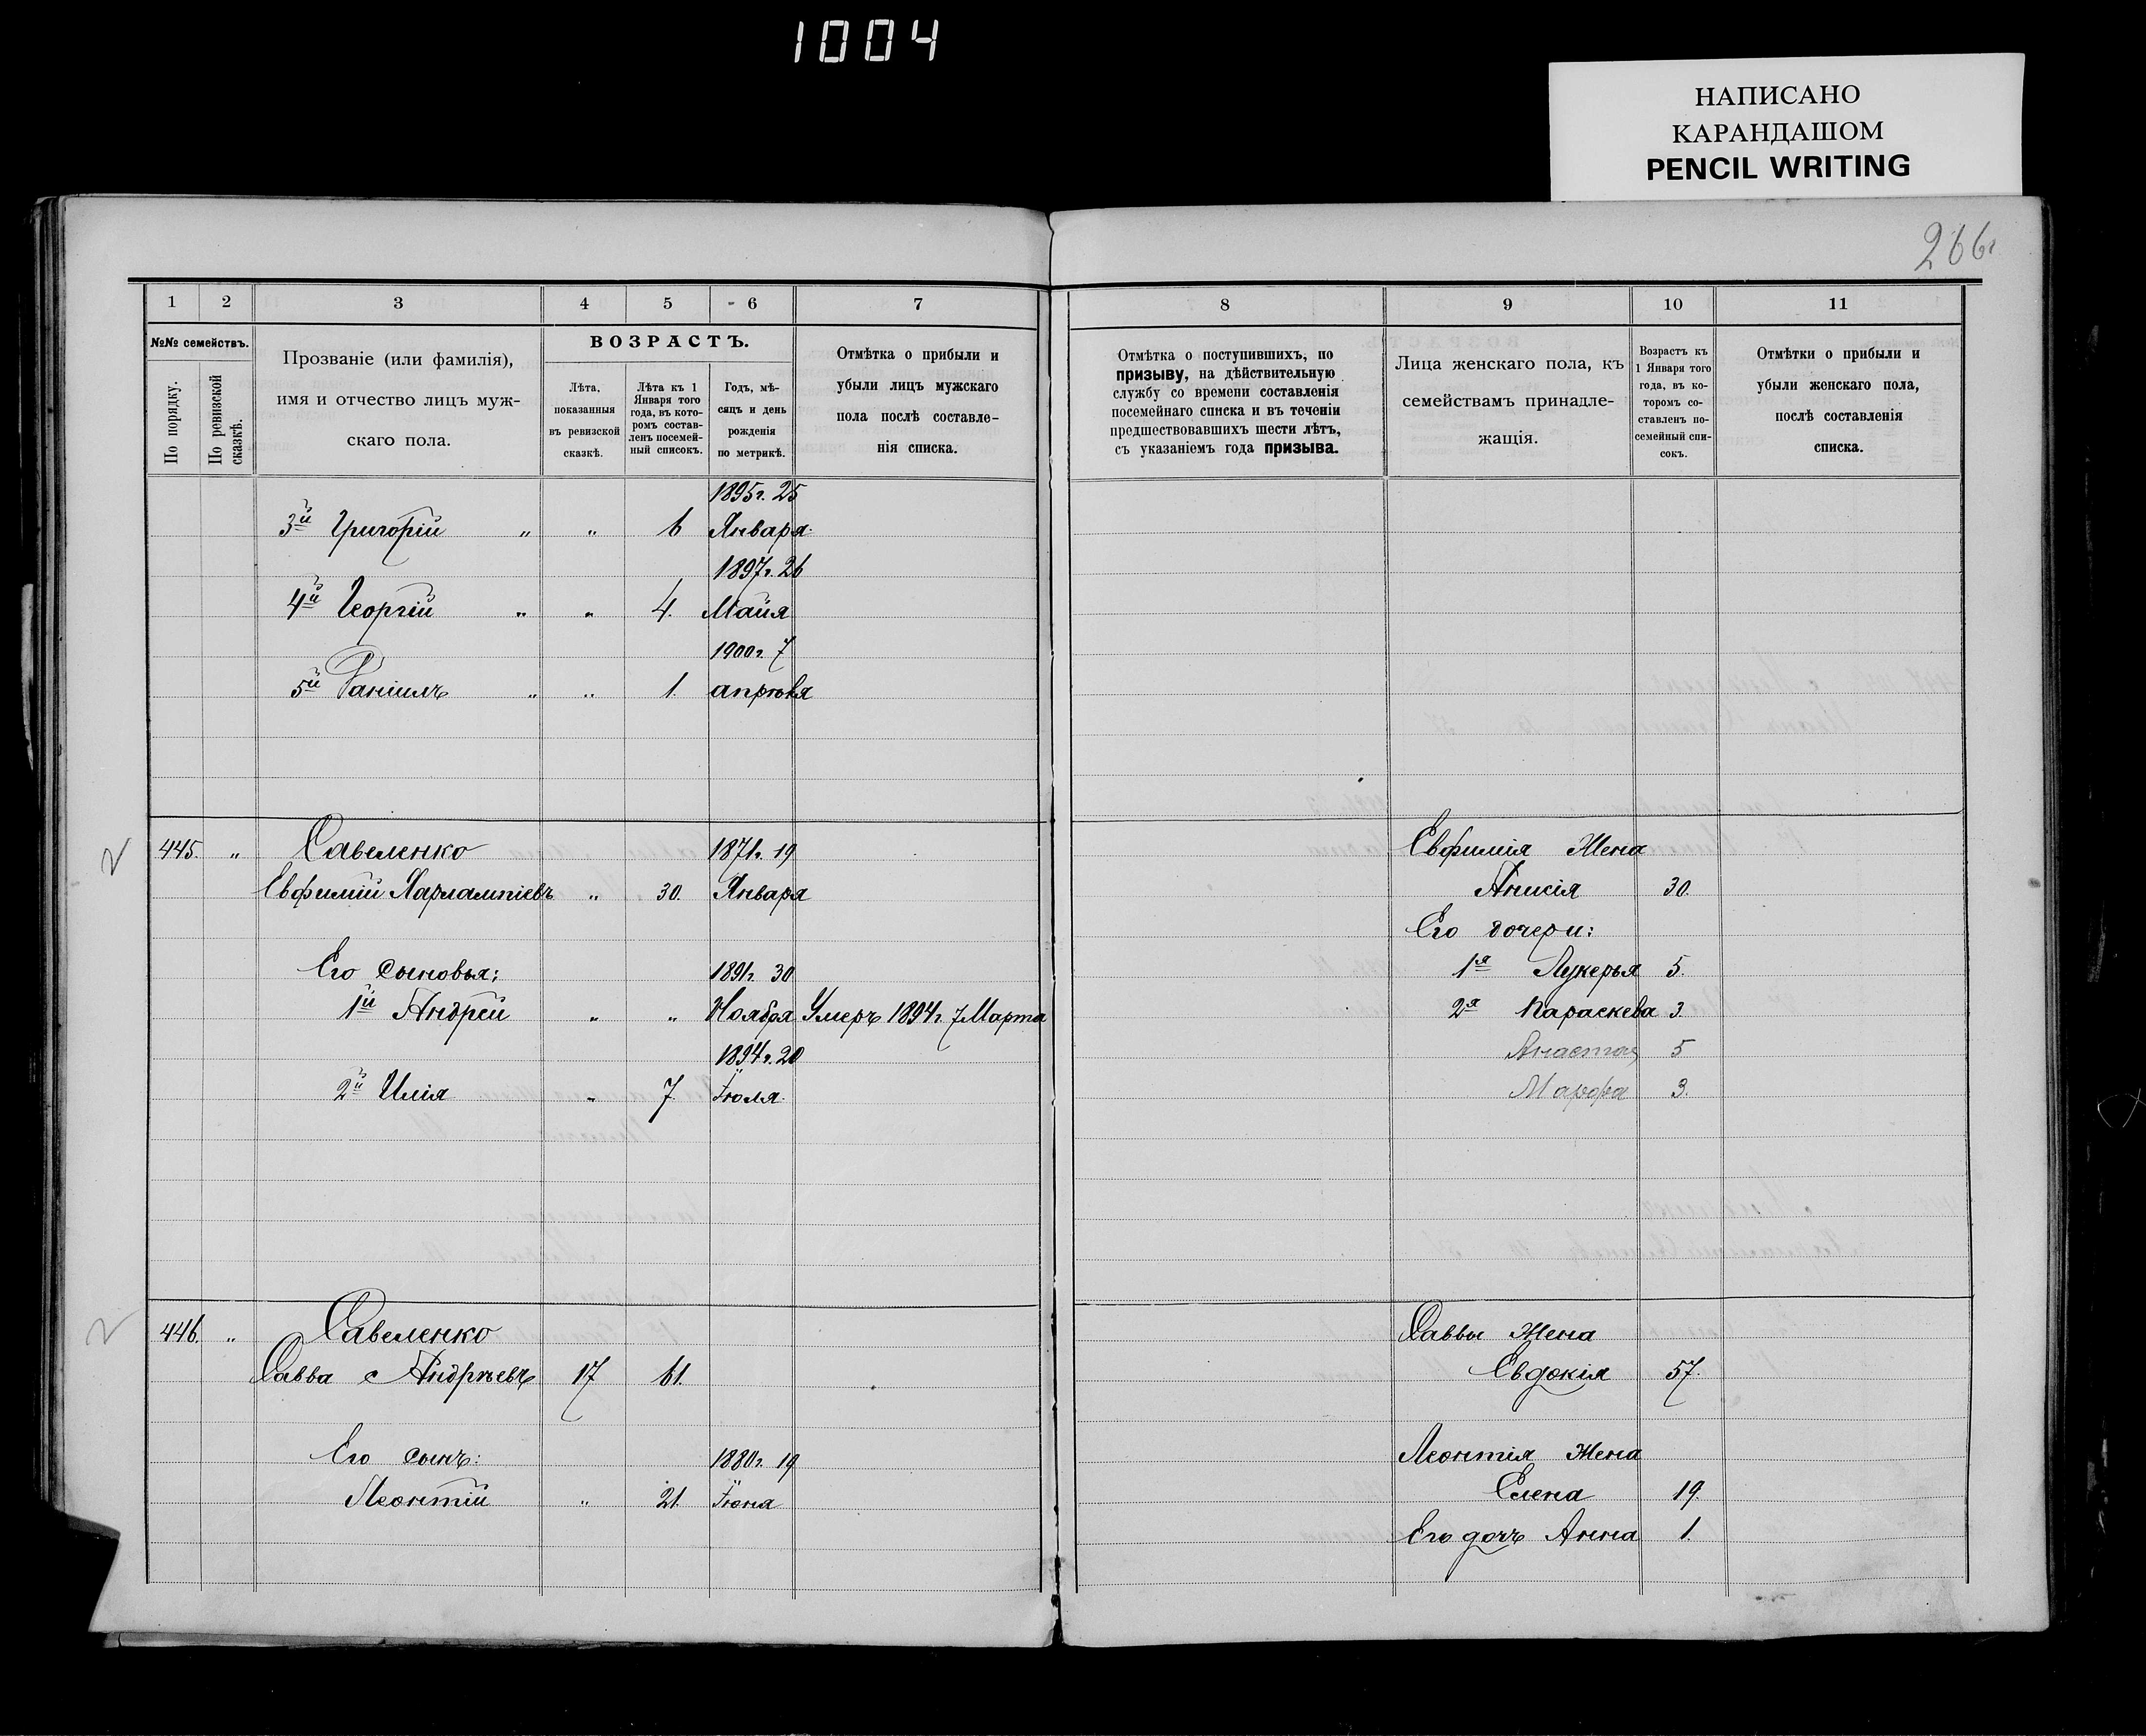 1004
НАПИСАНО
КАРАНДАШОМ
PENCIL WRITING
266
1 2 3 4 5 6 7
№№ семействъ.
По порядку.
По ревизской сказкѣ.
Прозваніе (или фамилія),
имя и отчество лицъ муж-
скаго пола.
ВОЗРАСТЪ.
Лѣта,
показанныя
въ ревизской
сказкѣ.
Лѣта къ 1
Января того
года, въ кото-
ромъ состав-
ленъ посемей-
ный списокъ.
Годъ, мѣ-
сяцъ и день
рожденія
по метрикѣ.
Отмѣтка о прибыли и
убыли лицъ мужскаго
пола послѣ составле-
нія списка.
8 9 10 11
Отмѣтка о поступившихъ, по
призыву, на дѣйствительную
службу со времени составленія
посемейнаго списка и въ теченіи
предшествовавшихъ шести лѣтъ,
съ указаніемъ года призыва.
Лица женскаго пола, къ
семействамъ принадле-
жащія.
Возрастъ къ
1 Января того
года, въ ко-
торомъ со-
ставленъ по-
семейный спи-
сокъ.
Отмѣтки о прибыли и
убыли женскаго пола,
послѣ составленія
списка.
1895г. 25
3й Григорій " " 6 Января
1897г. 26
4й Георгій " " 4. Майя
1900г. 7
5й Даніилъ " " 1. апрѣля
445. " Савеленко 1871г. 19
Евфимій Харлампіевъ " 30. Января
Его сыновья: 1891г. 30
1й Андрей " " Ноября Умеръ 1894г. 7 Марта
1894г. 20
2й Илія " 7 Іюля.
446. " Савеленко
Савва Андрѣевъ 17 61.
Его сынъ: 1880г. 19
Леонтій " 21. Іюня
Евфимія Жена
Анисія 30.
Его дочери:
1я Лукерья 5.
2я Параскева 3.
Анастас 5
Марфа 3.
Саввы Жена
Евдокія 57.
Леонтія Жена
Елена 19.
Его дочь Анна 1.